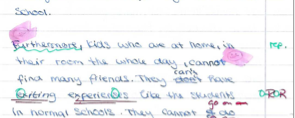 School.
Furthermore, kids who are at home, in rep.
their room the whole day, cannot
find many friends. They rarely have
exciting experiences like the students
go on
in normal schools. They cannot go